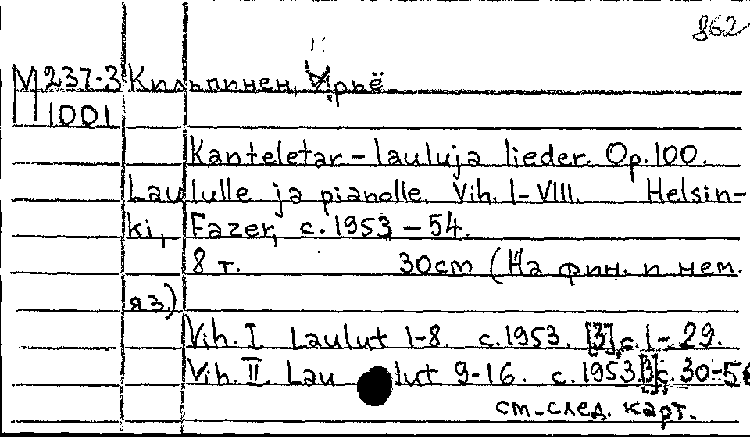 862
М 237-3 Кильпинен, Ирьё
1001
Kanteletar - lauluja lieder. Op. 100.
Laululle ja pianolle. Vih. I-VIII. Helsin-
ki, Fazer, c. 1953 - 54.
8 т. 30cm (На фин. и нем.
яз.)
Vih. I Laulut 1-8. c. 1953. [3], с. 1-29.
Vih. II. Lau lut 9-16. c. 1953 [3] с. 30-56
см. след. карт.